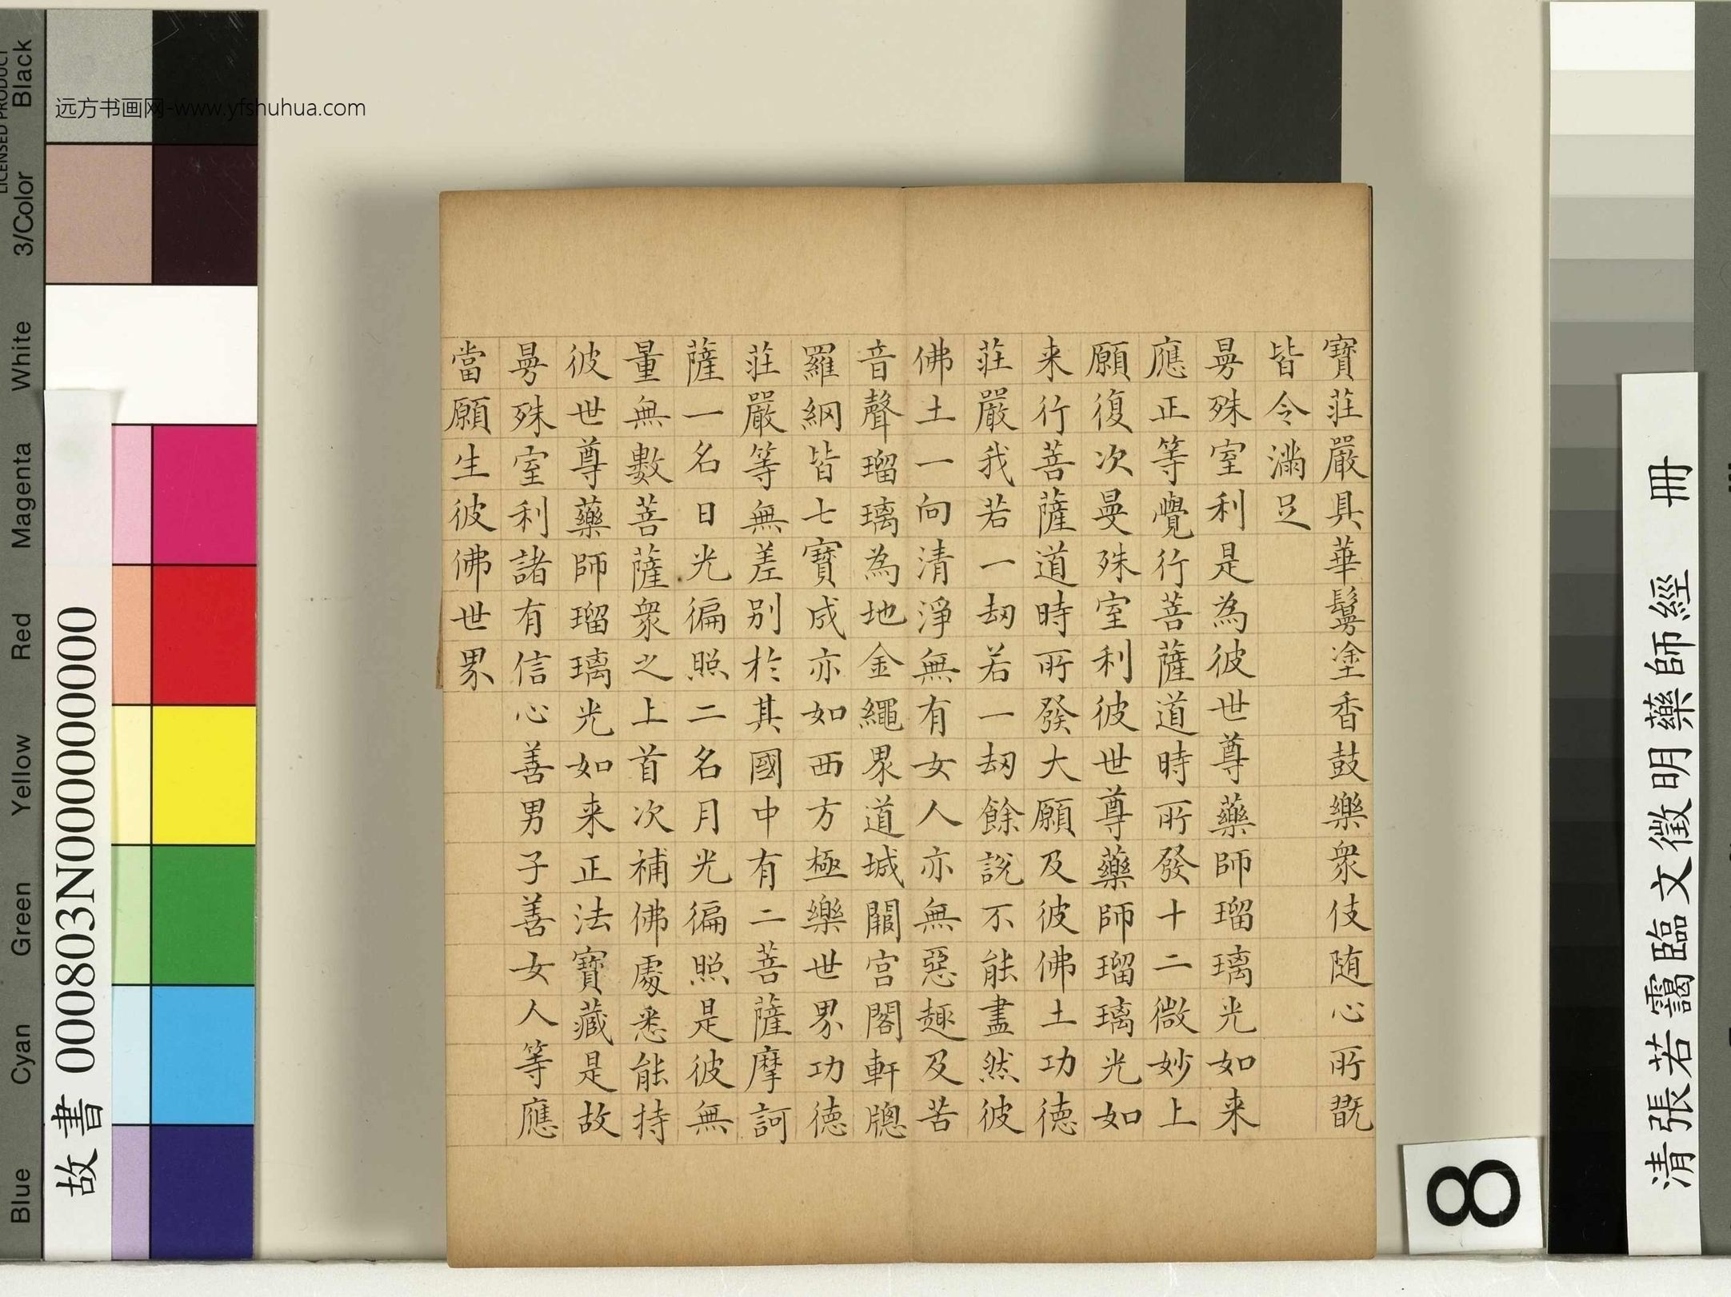 寶莊嚴具華鬘塗香鼓樂衆伎随心所翫
皆令滿足
曼殊室利是為彼世尊藥師瑠璃光如来
應正等覺行菩薩道時所發十二微妙上
願復次曼殊室利彼世尊藥師瑠璃光如
来行菩薩道時所發大願及彼佛土功德
莊嚴我若一劫若一劫餘說不能盡然彼
佛土一向清淨無有女人亦無惡趣及苦
音聲瑠璃為地金繩界道城闕宮閣軒牎
羅網皆七寶成亦如西方極樂世界功德
莊嚴等無差别於其國中有二菩薩摩訶
薩一名日光徧照二名月光徧照是彼無
量無數菩薩衆之上首次補佛處悉能持
彼世尊藥師瑠璃光如来正法寶藏是故
曼殊室利諸有信心善男子善女人等應
當願生彼佛世界
清張若靄臨文徵明藥師經 冊
8
故書 000803N000000000
远方书画网-www.yfshuhua.com
LICENSED PRODUCT
Blue Cyan Green Yellow Red Magenta White 3/Color Black